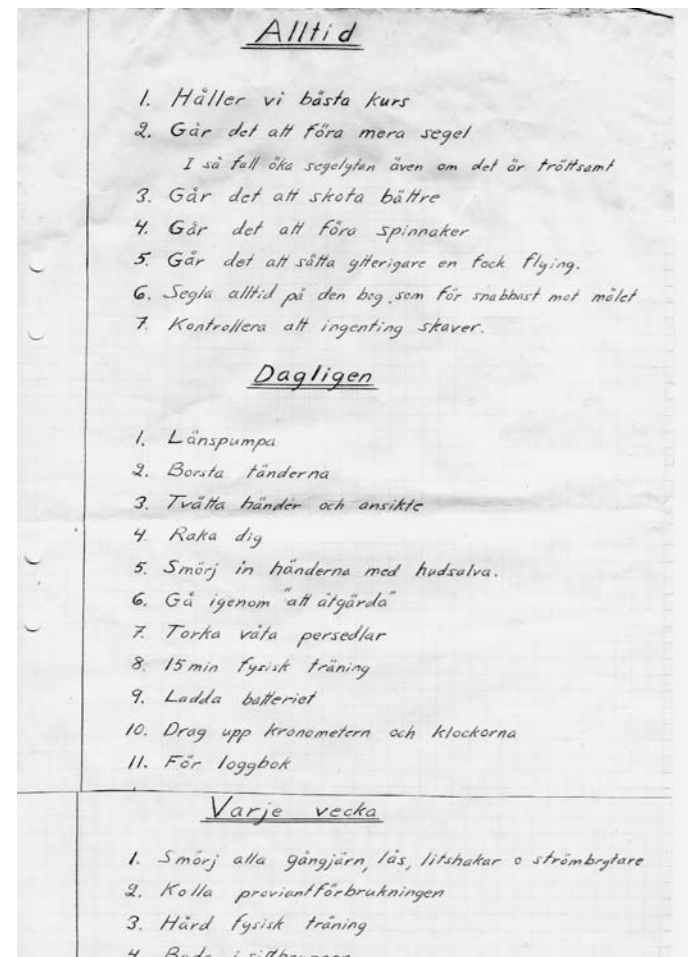 Alltid
1. Håller vi bästa kurs
2. Går det att föra mera segel
I så fall öka segelytan även om det är tröttsamt
3. Går det att skota bättre
4. Går det att föra spinnaker
5. Går det att sätta ytterigare en fock flying.
6. Segla alltid på den bog, som för snabbast mot målet
7. Kontrollera att ingenting skaver.
Dagligen
1. Länspumpa
2. Borsta tänderna
3. Tvätta händer och ansikte
4. Raka dig
5. Smörj in händerna med hudsalva.
6. Gå igenom "att åtgärda"
7. Torka våta persedlar
8. 15 min fysisk träning
9. Ladda batteriet
10. Drag upp kronometern och klockorna
11. För loggbok
Varje vecka
1. Smörj alla gångjärn, lås, litshakar o strömbrytare
2. Kolla proviantförbrukningen
3. Hård fysisk träning
4. Bada i sittbrunnen